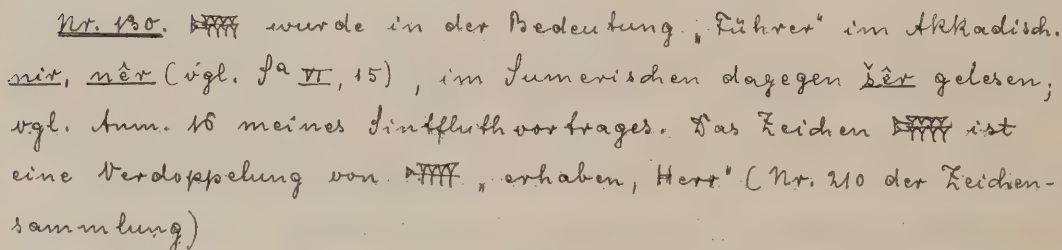 Nr. 130. wurde in der Bedeutung „Führer“ im Akkadisch.
nir, nêr (vgl. Sᵃ VI, 15), im Sumerischen dagegen šêr gelesen;
vgl. Anm. 16 meines Sintfluthvortrages. Das Zeichen ist
eine Verdoppelung von „erhaben, Herr“ (Nr. 210 der Zeichen-
sammlung)